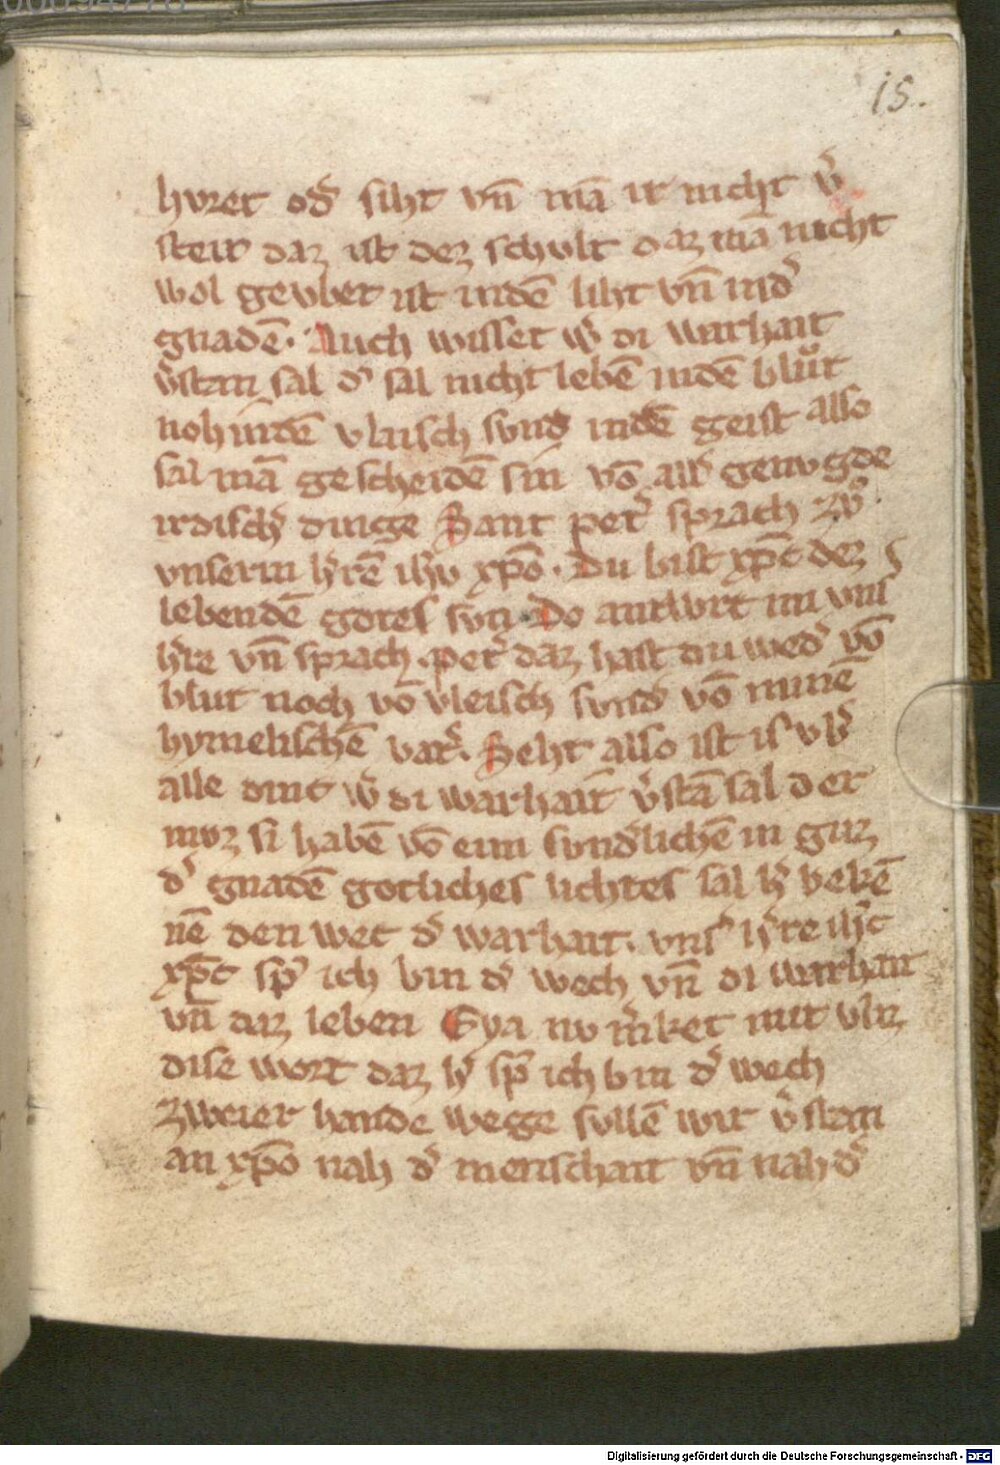 15.
hvret od᾽ siht vn̄ mā it nicht v᾽
stett daz ist dez schvlt daz mā nicht
wol gevbet ist indē liht vn̄ in d᾽
gnadē. Auch wisset w᾽ di warhait
v᾽stan sal d᾽ sal nicht lebē indē blůt
noh indē vlaisch svnd᾽ indē geist also
sal mā gescheidē sin vō all᾽ genvgde
irdisch᾽ dinge Sant pet᾽ sprach zv᾽
vnserm h᾽rē ih᾽v xp̄o. Du bist xp̄c dez
lebendē gotes svn. Do antwrt im vnš
h᾽re vn̄ sprach. pet᾽ daz hast du wed᾽ vō
blut noch vō vleisch svnd᾽ vō minē
hymelischē vat᾽. Seht also ist is vb᾽
alle dinc w᾽ di warhait v᾽stā sal der
mvz si habē vō eim svnd᾽lichē in guz
d᾽ gnadē gotliches lichtes sal h᾽ bekē
nē den wec d᾽ warhait. vns᾽ h᾽re ih᾽c
xp̄c sp᾽ ich bin d᾽ wech vn̄ di warhait
vn̄ daz leben Eya nv m᾽ket mit vliz
dise wort daz h᾽ sp᾽ ich bin d᾽ wech
zweier hande wege svllē wir v᾽stan
an xp̄o nah d᾽ menschait vn̄ nah d᾽
Digitalisierung gefördert durch die Deutsche Forschungsgemeinschaft - DFG